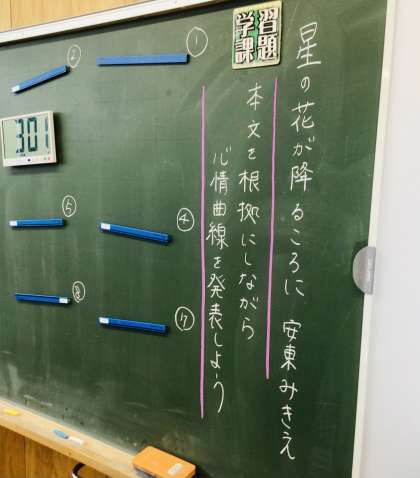 星の花が降るころに 安東みきえ
学習課題
本文を根拠にしながら
心情曲線を発表しよう
①
②
④
⑤
⑦
⑧
3:01